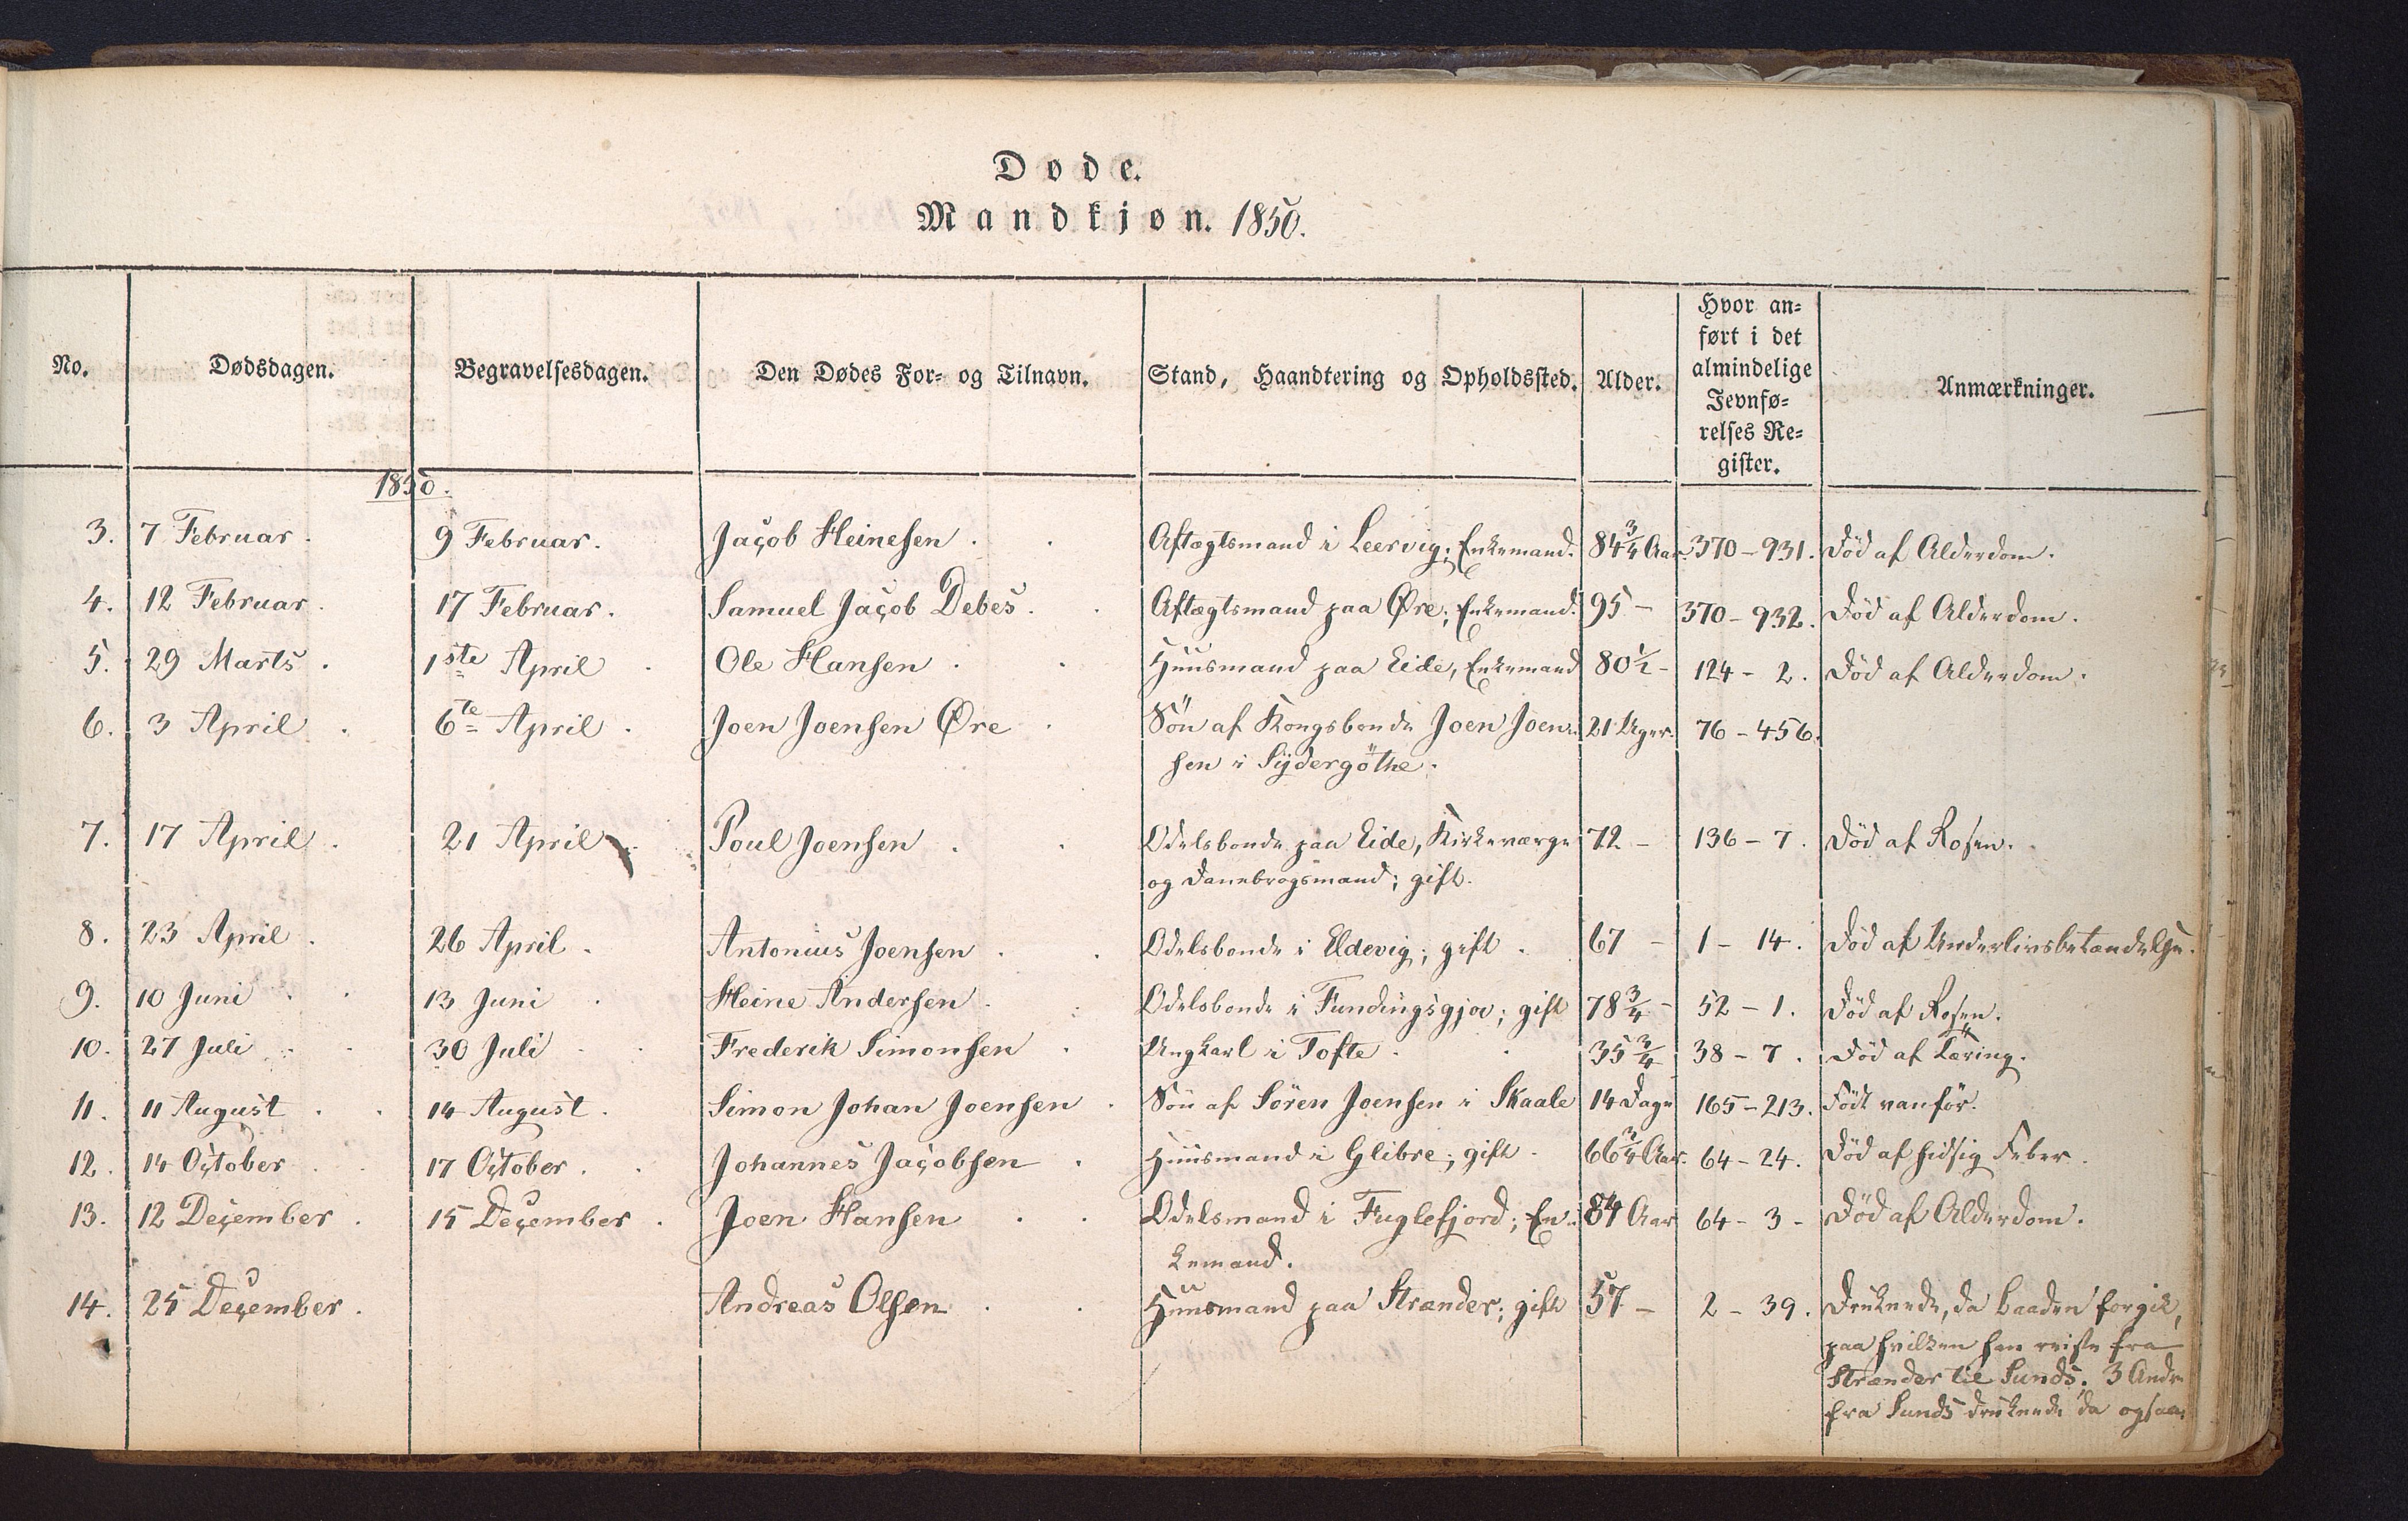 Døde.
Mandkjøn. 1850.
No. Dødsdagen. Begravelsesdagen. Den Dødes For- og Tilnavn. Stand, Haandtering og Opholdssted. Alder. Hvor an-
ført i det
almindelige
Jevnfø-
relses Re-
gister. Anmærkninger.
1850.
3. 7 Februar. 9 Februar. Jacob Heinesen. Aftægtsmand i Leervig; Enkemand. 84¾ Aar 370-931. Død af Alderdom.
4. 12 Februar. 17 Februar. Samuel Jacob Debes. Aftægtsmand paa Øre; Enkemand. 95- 370-932. Død af Alderdom.
5. 29 Marts. 1ste April. Ole Hansen. Huusmand paa Eide, Enkemand 80½- 124-2. Død af Alderdom.
6. 3 April. 6te April. Joen Joensen Øre. Sön af Kongsbonde Joen Joen-
sen i Sydergöthe. 21 Uger. 76-456.
7. 17 April. 21 April. Poul Joensen. Odelsbonde paa Eide, Kirkeværge
og Danebrogsmand; gift. 72- 136-7. Død af Rosen.
8. 23 April. 26 April. Antonius Joensen. Odelsbonde i Eldevig; gift. 67- 1-14. Død af Underlivsbetændelse.
9. 10 Juni. 13 Juni. Heine Andersen. Odelsbonde i Fundingsgjov; gift 78¾- 52-1. Død af Rosen.
10. 27 Juli. 30 Juli. Frederik Simonsen. Ungkarl i Tofte. 35¾ 38-7. Død af Tæring.
11. 11 August. 14 August. Simon Johan Joensen. Sön af Sören Joensen i Skaale 14 Dage 165-213. Födt vanför.
12. 14 October. 17 October. Johannes Jacobsen. Huusmand i Glibre; gift. 66¾ Aar. 64-24. Død af hidsig Feber.
13. 12 December. 15 December. Joen Hansen. Odelsmand i Fuglefjord; En-
kemand. 84 Aar 64-3- Død af Alderdom.
14. 25 December. Andreas Olsen. Huusmand paa Strænder; gift 57- 2-39. Druknede, da Baaden forgik,
paa hvilken han reiste fra
Strænder til Sunds. 3 Andre
fra Sunds druknede da ogsaa.